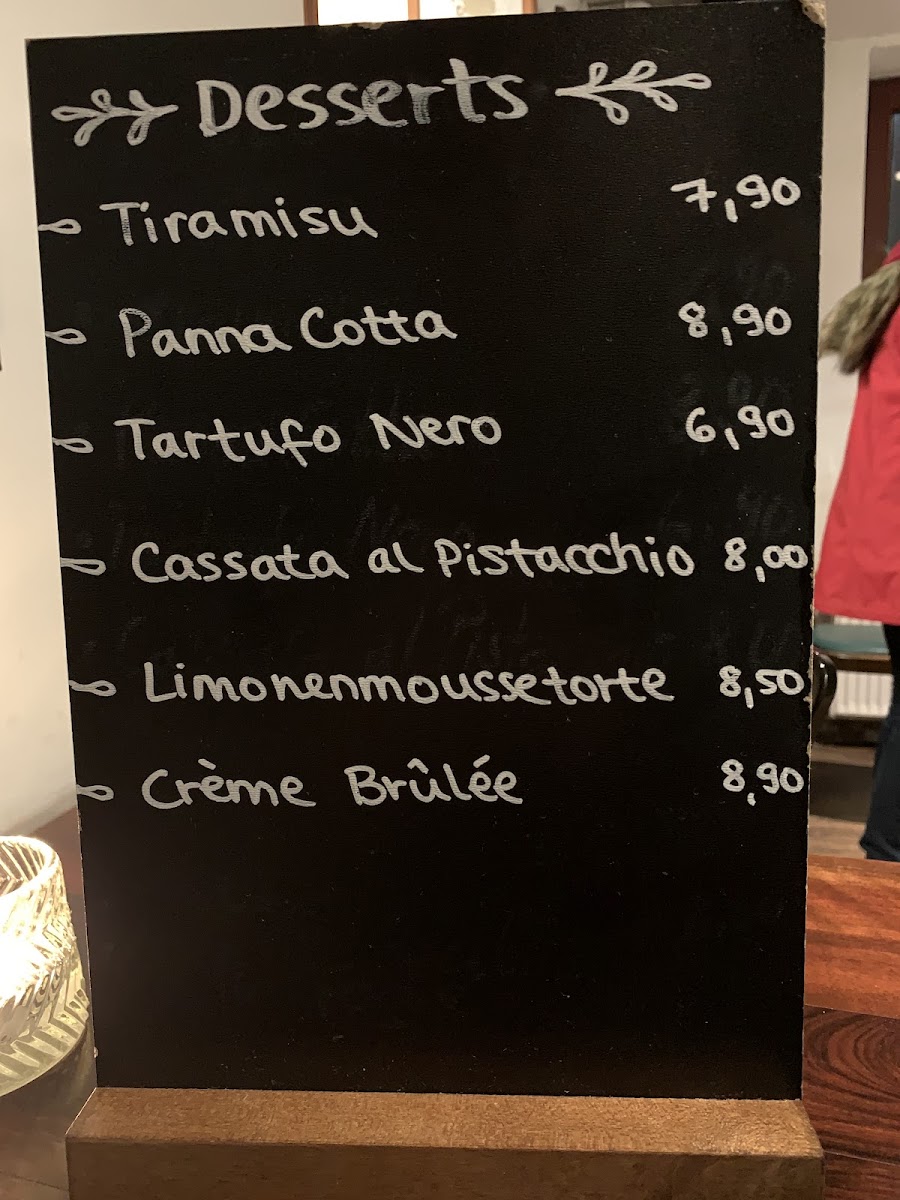 Desserts
Tiramisu 7,90
Panna Cotta 8,90
Tartufo Nero 6,90
Cassata al Pistacchio 8,00
Limonenmoussetorte 8,50
Crème Brûlée 8,90